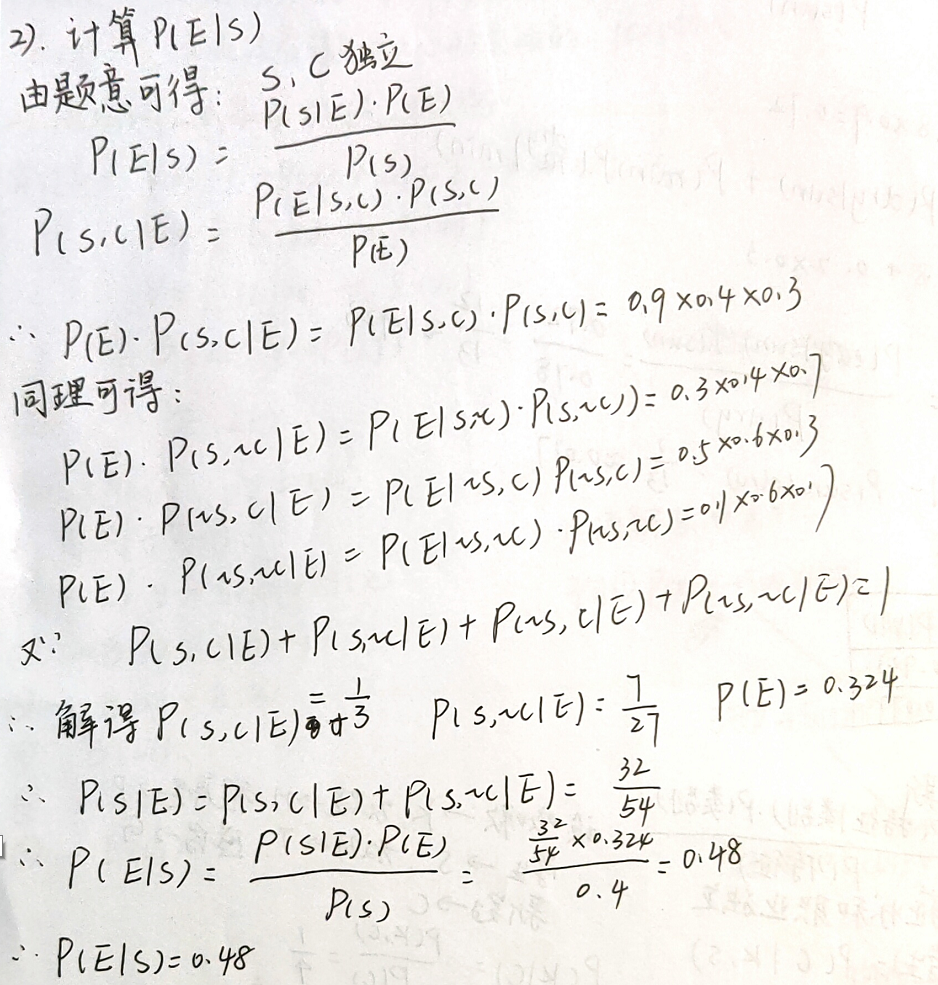 2). 计算 P(E|S)
由题意可得: S, C 独立
P(E|S) = P(S|E)·P(E) / P(S)
P(S,C|E) = P(E|S,C)·P(S,C) / P(E)
∴ P(E)·P(S,C|E) = P(E|S,C)·P(S,C) = 0.9×0.4×0.3
同理可得:
P(E)·P(S,~C|E) = P(E|S,~C)·P(S,~C)) = 0.3×0.4×0.7
P(E)·P(~S,C|E) = P(E|~S,C) P(~S,C) = 0.5×0.6×0.3
P(E)·P(~S,~C|E) = P(E|~S,~C)·P(~S,~C) = 0.1×0.6×0.7
又∵ P(S,C|E) + P(S,~C|E) + P(~S,C|E) + P(~S,~C|E) = 1
∴ 解得 P(S,C|E) = 1/3 P(S,~C|E) = 7/27 P(E) = 0.324
∴ P(S|E) = P(S,C|E) + P(S,~C|E) = 32/54
∴ P(E|S) = P(S|E)·P(E) / P(S) = 32/54 × 0.324 / 0.4 = 0.48
∴ P(E|S) = 0.48